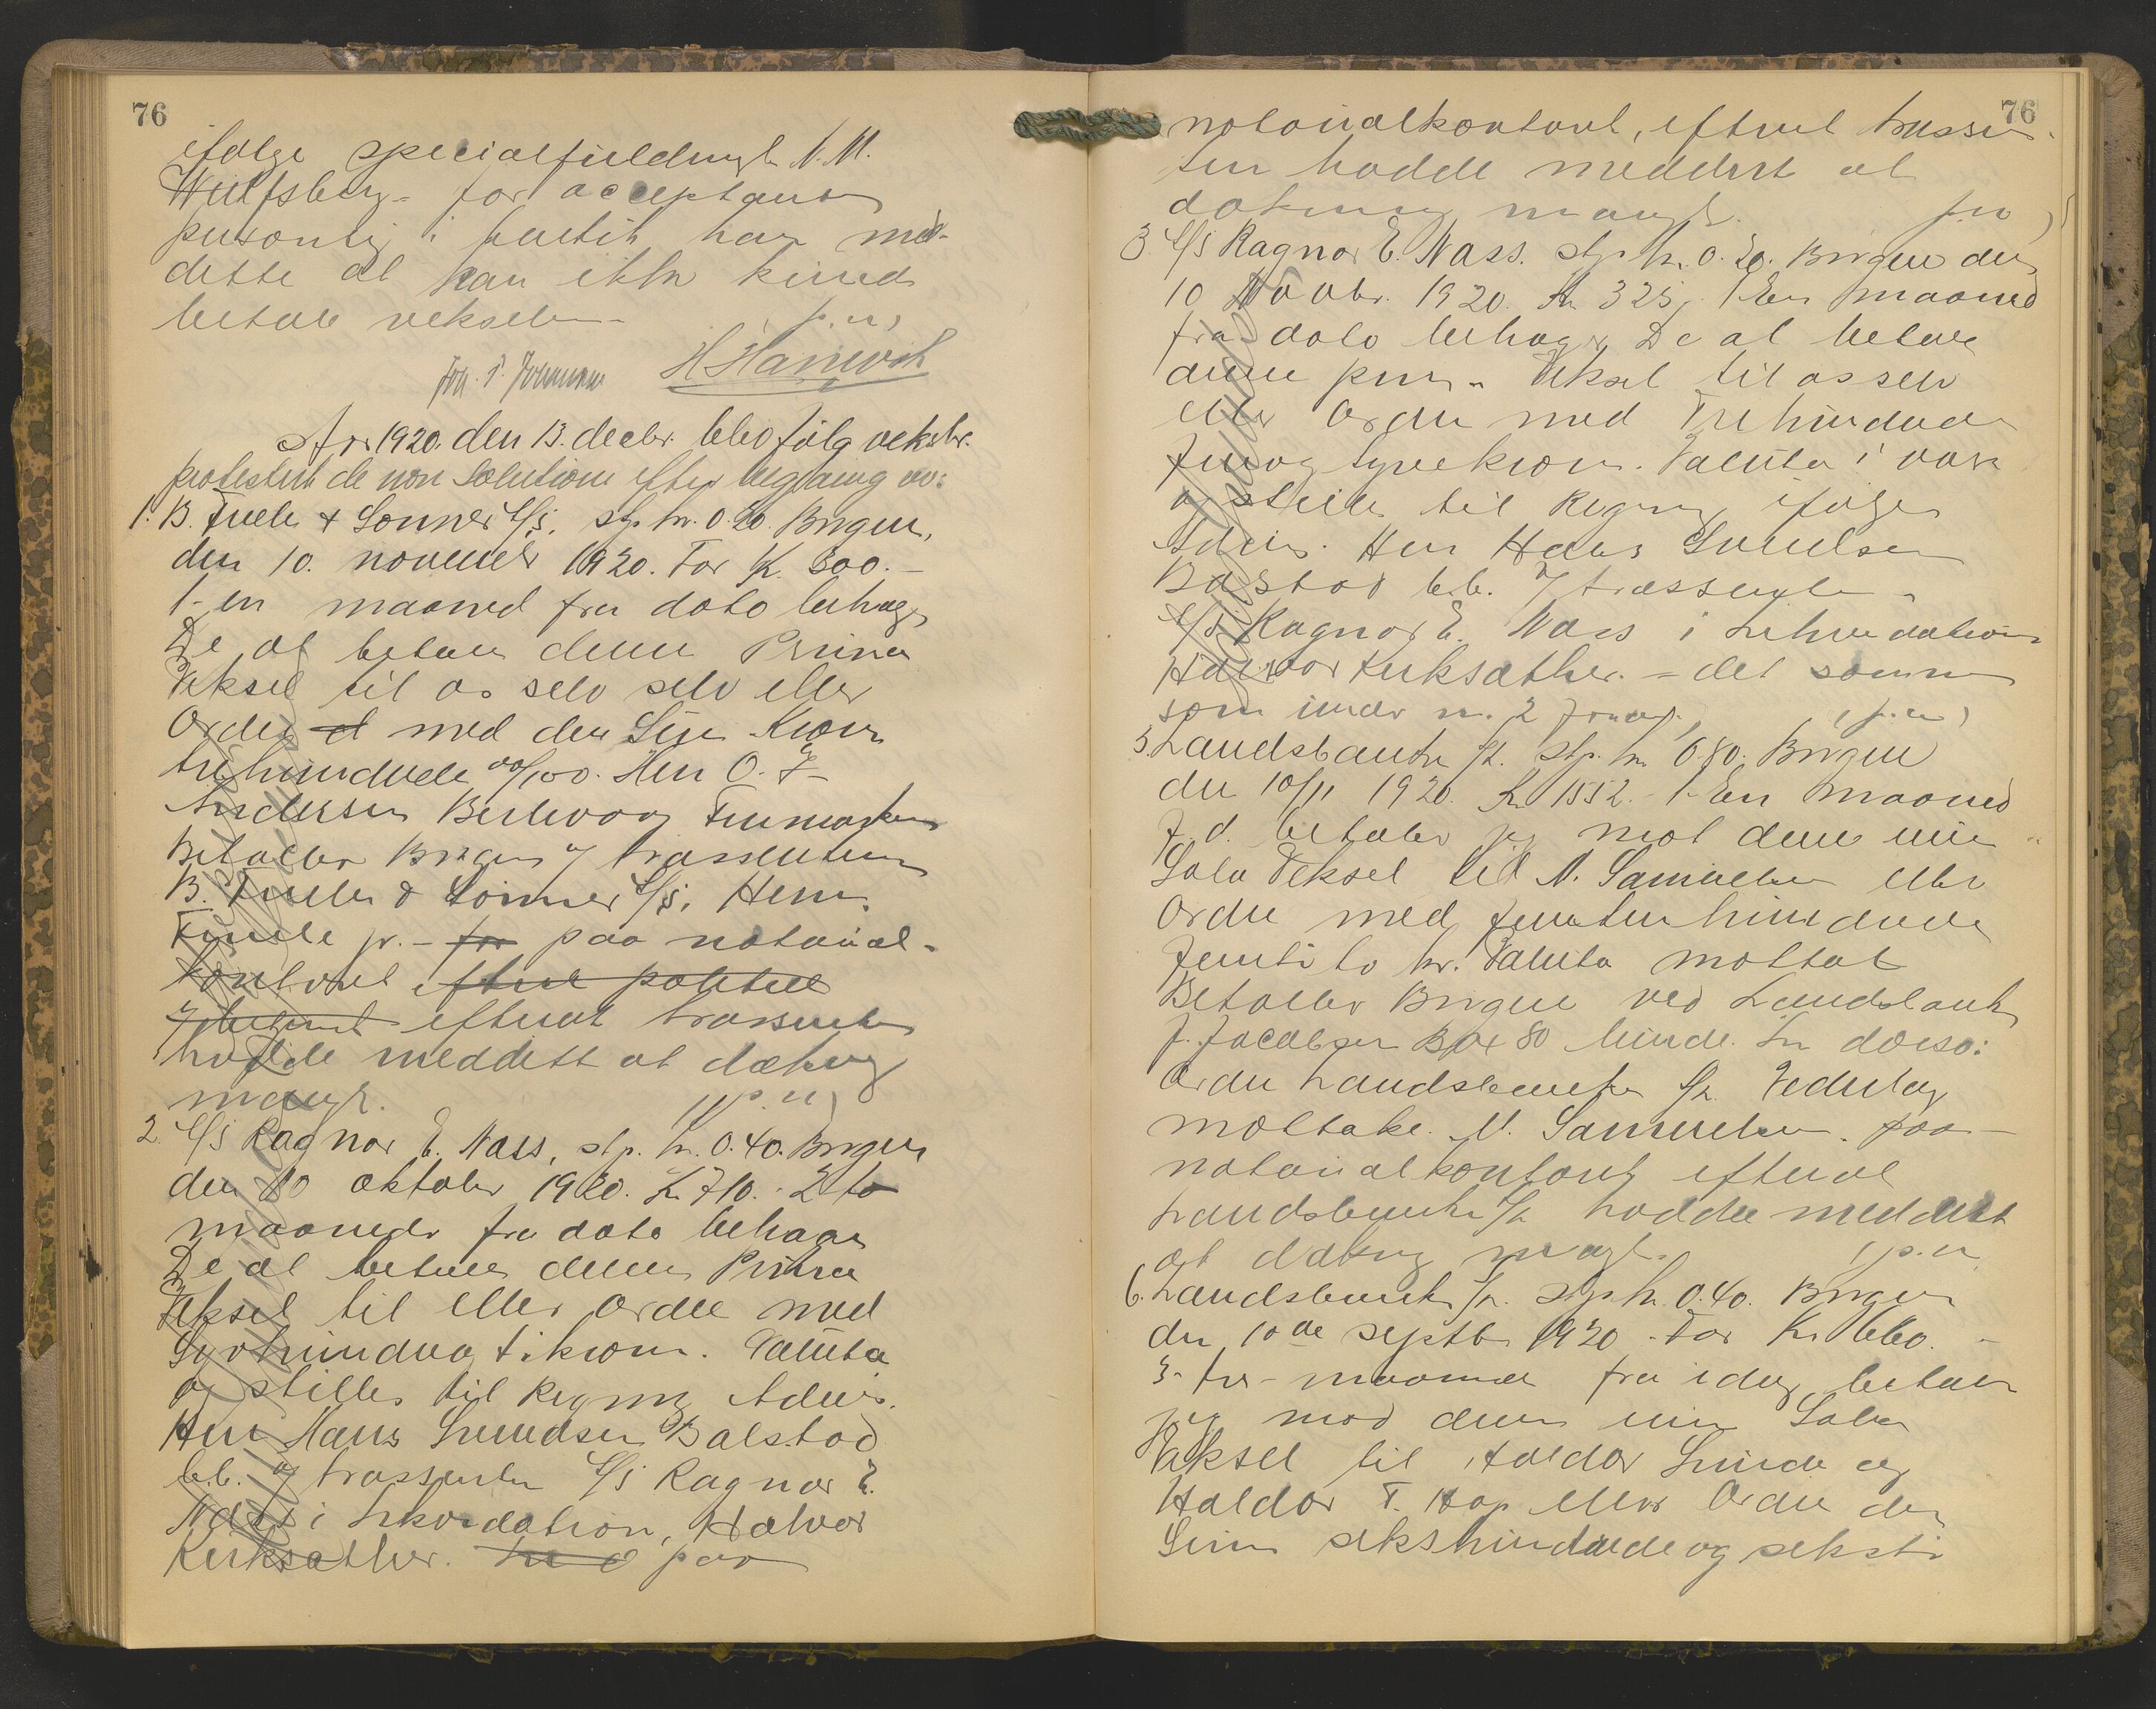 76
ifølge specialfuldmagt N. M.
Wulfsberg - for acceptanten
personlig i forbit han med-
delte at han ikke kunde
betale vekselen - (p.n)
Joh. P. Johnsen H Hanwik
Aar 1920. den 13. decbr. blev følg veksler
protestert de non solutione efter begjæring av:
1. B. Friele & Sønner A/S. stp. kr. 0.20. Bergen,
den 10. november 1920. For Kr. 300.-
1-en maaned fra dato behager
De at betale denne Prima
Veksel til os selv selv eller
Ordre d med den Sum Kroner
trehundrede 00/100. Herr O. J.
Andersen Berlevaag Finmarken
Betalbar Bergen af trassenten
B. Friele & Sønner A/S. Herm.
Friele jr. - for paa notarial-
kontoret efterat
efterat trassenten
hadde meddelt at dækning
mangl. (p.n)
2. A/S Ragnar E. Næss, stp. kr. 0.40. Bergen
den 10 oktober 1920. Kr 710. - 2 to
maaneder fra dato behager
De at betale denne Prima
Veksel til eller ordre med
Syvhundreog tikroner. Valuta
og stilles til Regning Advis.
Herr Hans Svendsen Balstad
b.b. af trassenten A/S Ragnar E.
Næss i Likvidation, Halvor
Kirksæther. paa
76
notarialkontoret, efterat trassen-
ten hadde meddelt at
dækning mangl. (p.n)
3. A/S Ragnar E. Næss. stp. kr. 0.20. Bergen den
10 Novbr. 1920. Kr 325,- 1-En maaned
fra dato behager De at betale
denne prima Veksel til os selv
eller Ordre med Trehundrede
femogtyvekroner. Valuta i vare
og stilles til Regning ifølge
Advis. Herr Hans Svendsen
Balstad b.b. af trassenten
A/S Ragnar E. Næss i Likvidation
Halvor Kirksæther. - det samme
som under nr. 2 (p.n)
5. Landsbanken A/S. stp. kr 0.80. Bergen
den 10/11 1920. Kr 1552.- 1-En maaned
f. d. betaler jeg mot denne min
Sola Veksel til N. Samuelsen eller
Ordre med femtenhundrede
femtito kr. Valuta mottat
Betalbar Bergen ved Landsbanken
J. Jacobsen Box 80 In dorso:
Ordre Landsbanken A/S.
mottake. N. Samuelsen. paa
notarialkontoret efterat
Landsbanken A/S hadde meddelt
at dækning mangl. (p.n
6. Landsbanken A/S. stp. kr. 0.40. Bergen
den 10de septbr 1920. For Kr. 660.-
3- tre- maaneder fra idag betaler
jeg mod denne min Sola
Veksel til Haldor Lunde og
Haldor T. Hop eller Ordre den
Sum sekshundrede og seksti